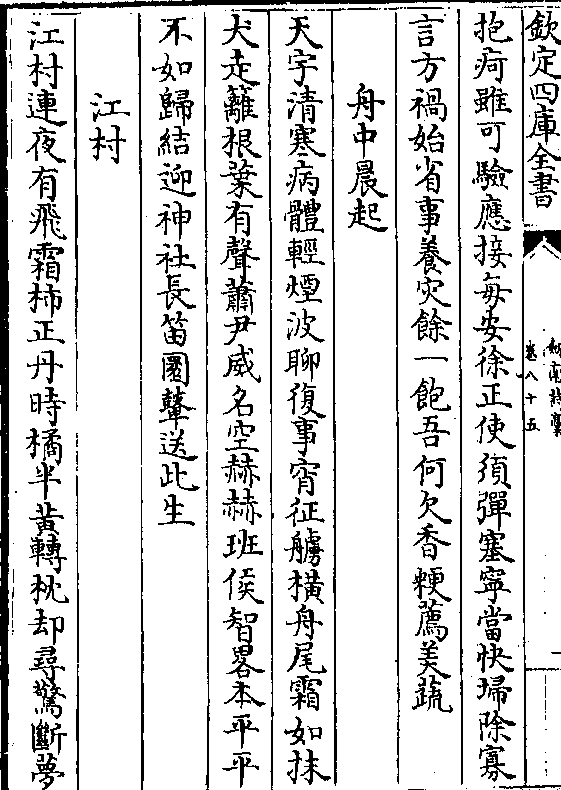 欽定四庫全書
劍南詩藁
卷八十五
抱疴雖可驗應接每安徐正使須彈塞寧當快埽除寡
言方禍始省事養灾餘一飽吾何欠香粳薦美蔬
舟中晨起
天宇清寒病體輕煙波聊復事宵征艣橫舟尾霜如抹
犬走籬根葉有聲蕭尹威名空赫赫班侯智畧本平平
不如歸結迎神社長笛圜鼙送此生
江村
江村連夜有飛霜柿正丹時橘半黃轉枕却尋驚斷夢